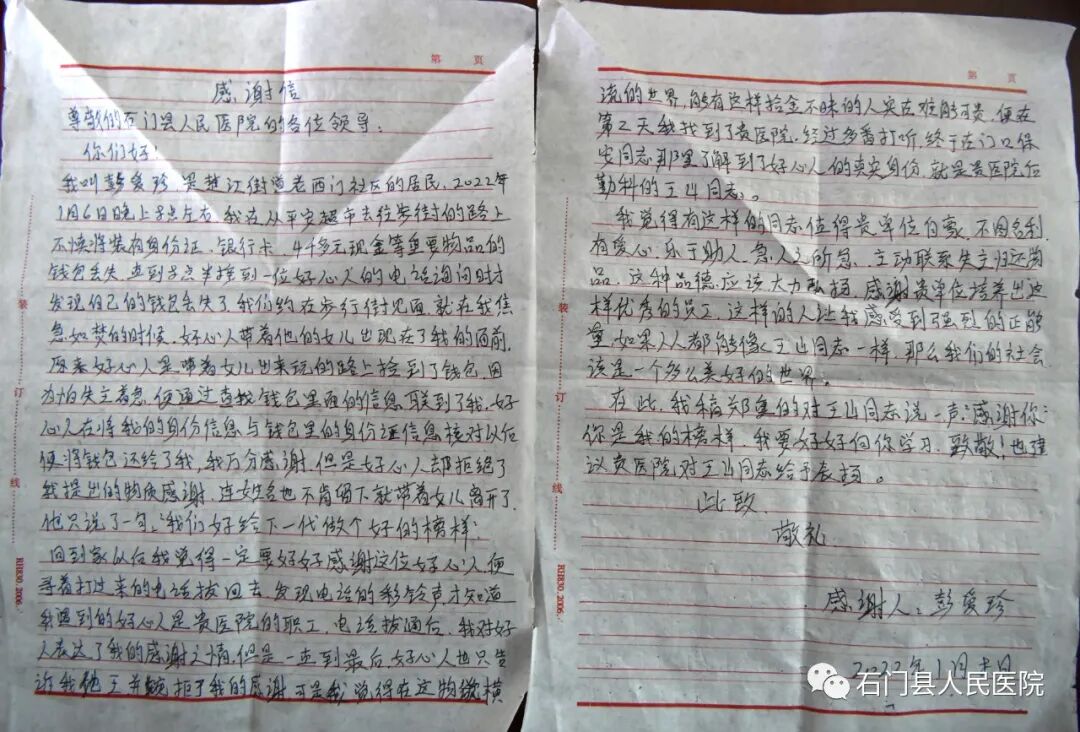 第 页
感谢信
尊敬的石门县人民医院的各位领导：
你们好！
我叫彭爱珍，是楚江街道老西门社区的居民，2022年
1月6日晚上8点左右，我在从平安超市去往步行街的路上
不慎将装有身份证、银行卡、4千多元现金等重要物品的
钱包丢失，直到8点半接到一位好心人的电话询问时才
发现自己的钱包丢失了，我们约在步行街见面，就在我焦
急如焚的时候，好心人带着他的女儿出现在了我的面前，
原来好心人是带着女儿出来玩的路上捡到了钱包，因
为怕失主着急，便通过查找钱包里面的信息联到了我，好
心人在将我的身份信息与钱包里的身份证信息核对以后
便将钱包还给了我，我万分感谢，但是好心人却拒绝了
我提出的物质感谢，连姓名也不肯留下就带着女儿离开了，
他只说了一句，“我们好给下一代做个好的榜样”
回到家以后我觉得一定要好好感谢这位好心人，便
寻着打过来的电话拨回去，发现电话的彩铃声，才知道
我遇到的好心人是贵医院的职工，电话拨通后，我对好
人表达了我的感谢之情，但是一直到最后，好心人也只告
诉我他王并婉拒了我的感谢，可是我觉得在这物欲横
装 订 线
RH830.2006.
第 页
流的世界，能有这样拾金不昧的人实在难能可贵，便在
第二天我找到了贵医院，经过多番打听，终于在门口保
安同志那里了解到了好心人的真实身份，就是贵医院后
勤科的王山同志。
我觉得有这样的同志值得贵单位自豪，不图名利，
有爱心，乐于助人，急人之所急，主动联系失主归还物
品，这种品德应该大力弘扬，感谢贵单位培养出这
样优秀的员工，这样的人让我感受到了强烈的正能
量，如果人人都能像王山同志一样，那么我们的社会
该是一个多么美好的世界。
在此，我稿郑重的对王山同志说一声“感谢你”
你是我的榜样，我要好好向你学习，致敬！也建
议贵医院对王山同志给予表扬。
此致
敬礼
感谢人：彭爱珍
2022年1月 日
装 订 线
RH830.2006.
石门县人民医院